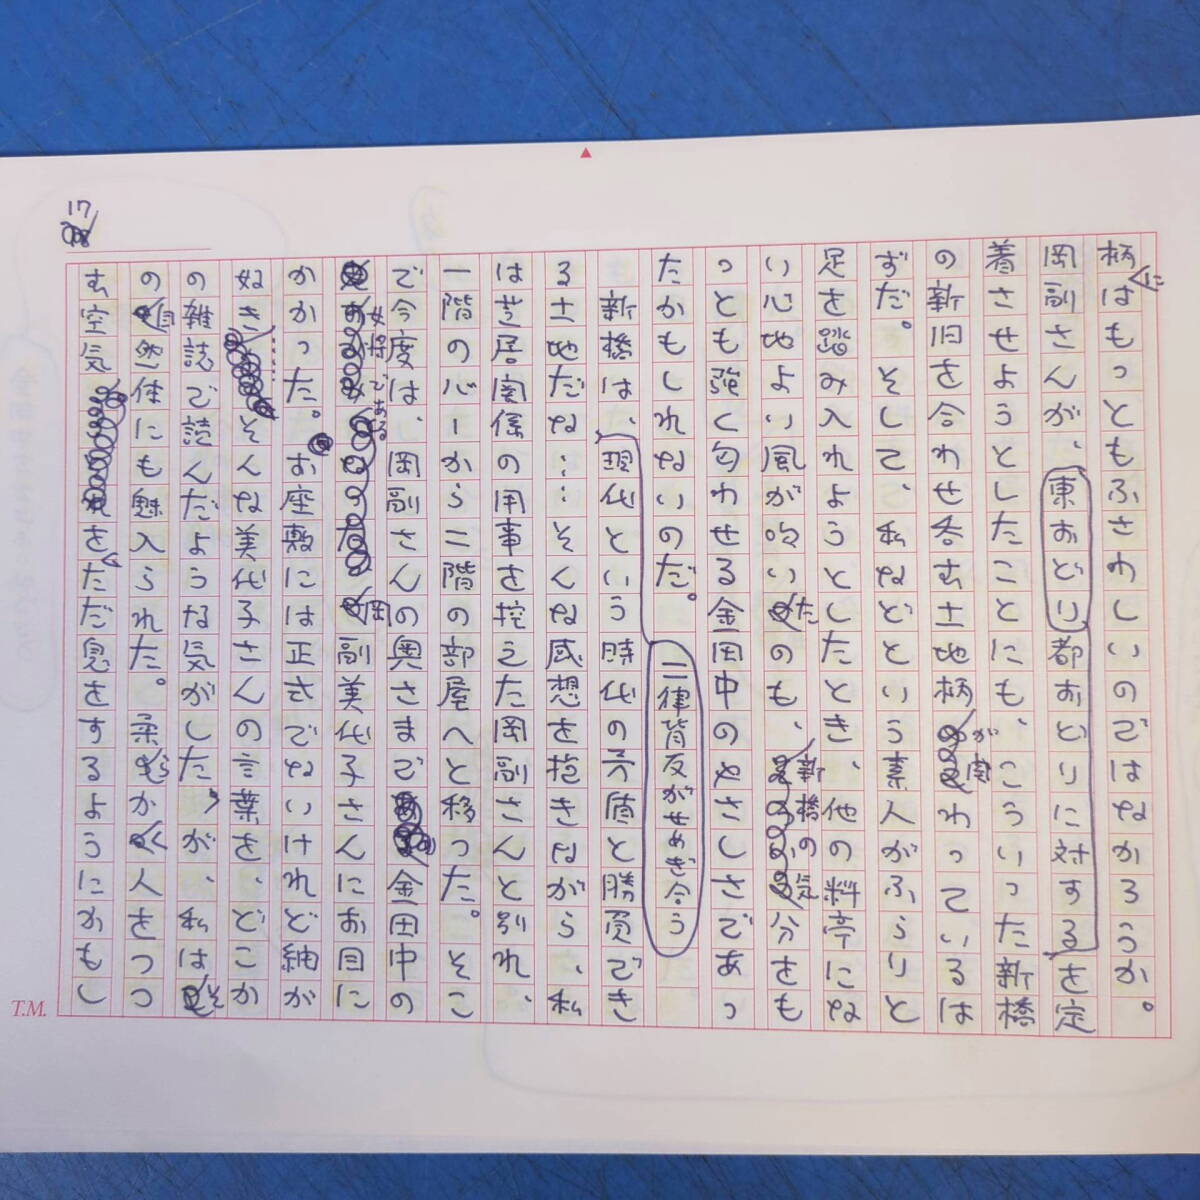 17
柄にはもっともふさわしいのではなかろうか。
岡副さんが、東おどり都おどりに対するを定
着させようとしたことにも、こういった新橋
の新旧を合わせ呑む土地柄が関わっているは
ずだ。そして、私などという素人がふらりと
足を踏み入れようとしたとき、他の料亭にな
い心地よい風が吹いたのも、新橋の気分をも
っとも強く匂わせる金田中のやさしさであっ
たかもしれないのだ。
二律背反がせめぎ合う
新橋は、現代という時代の
と勝負でき
る土地だな……そんな感想を抱きながら、私
は芝居関係の用事を控えた岡副さんと別れ、
一階のバーから二階の部屋へと移った。そこ
で今度は、岡副さんの奥さまで金田中の
女将である
岡副美代子さんにお目に
かかった。お座敷には正式でないけれど紬が
ぬき
そんな美代子さんの言葉を、どこか
の雑誌で読んだような気がしたが、私はそ
の自然体にも魅入られた。柔らかく人をつつ
む空気をただ息をするようにかもし
T.M.